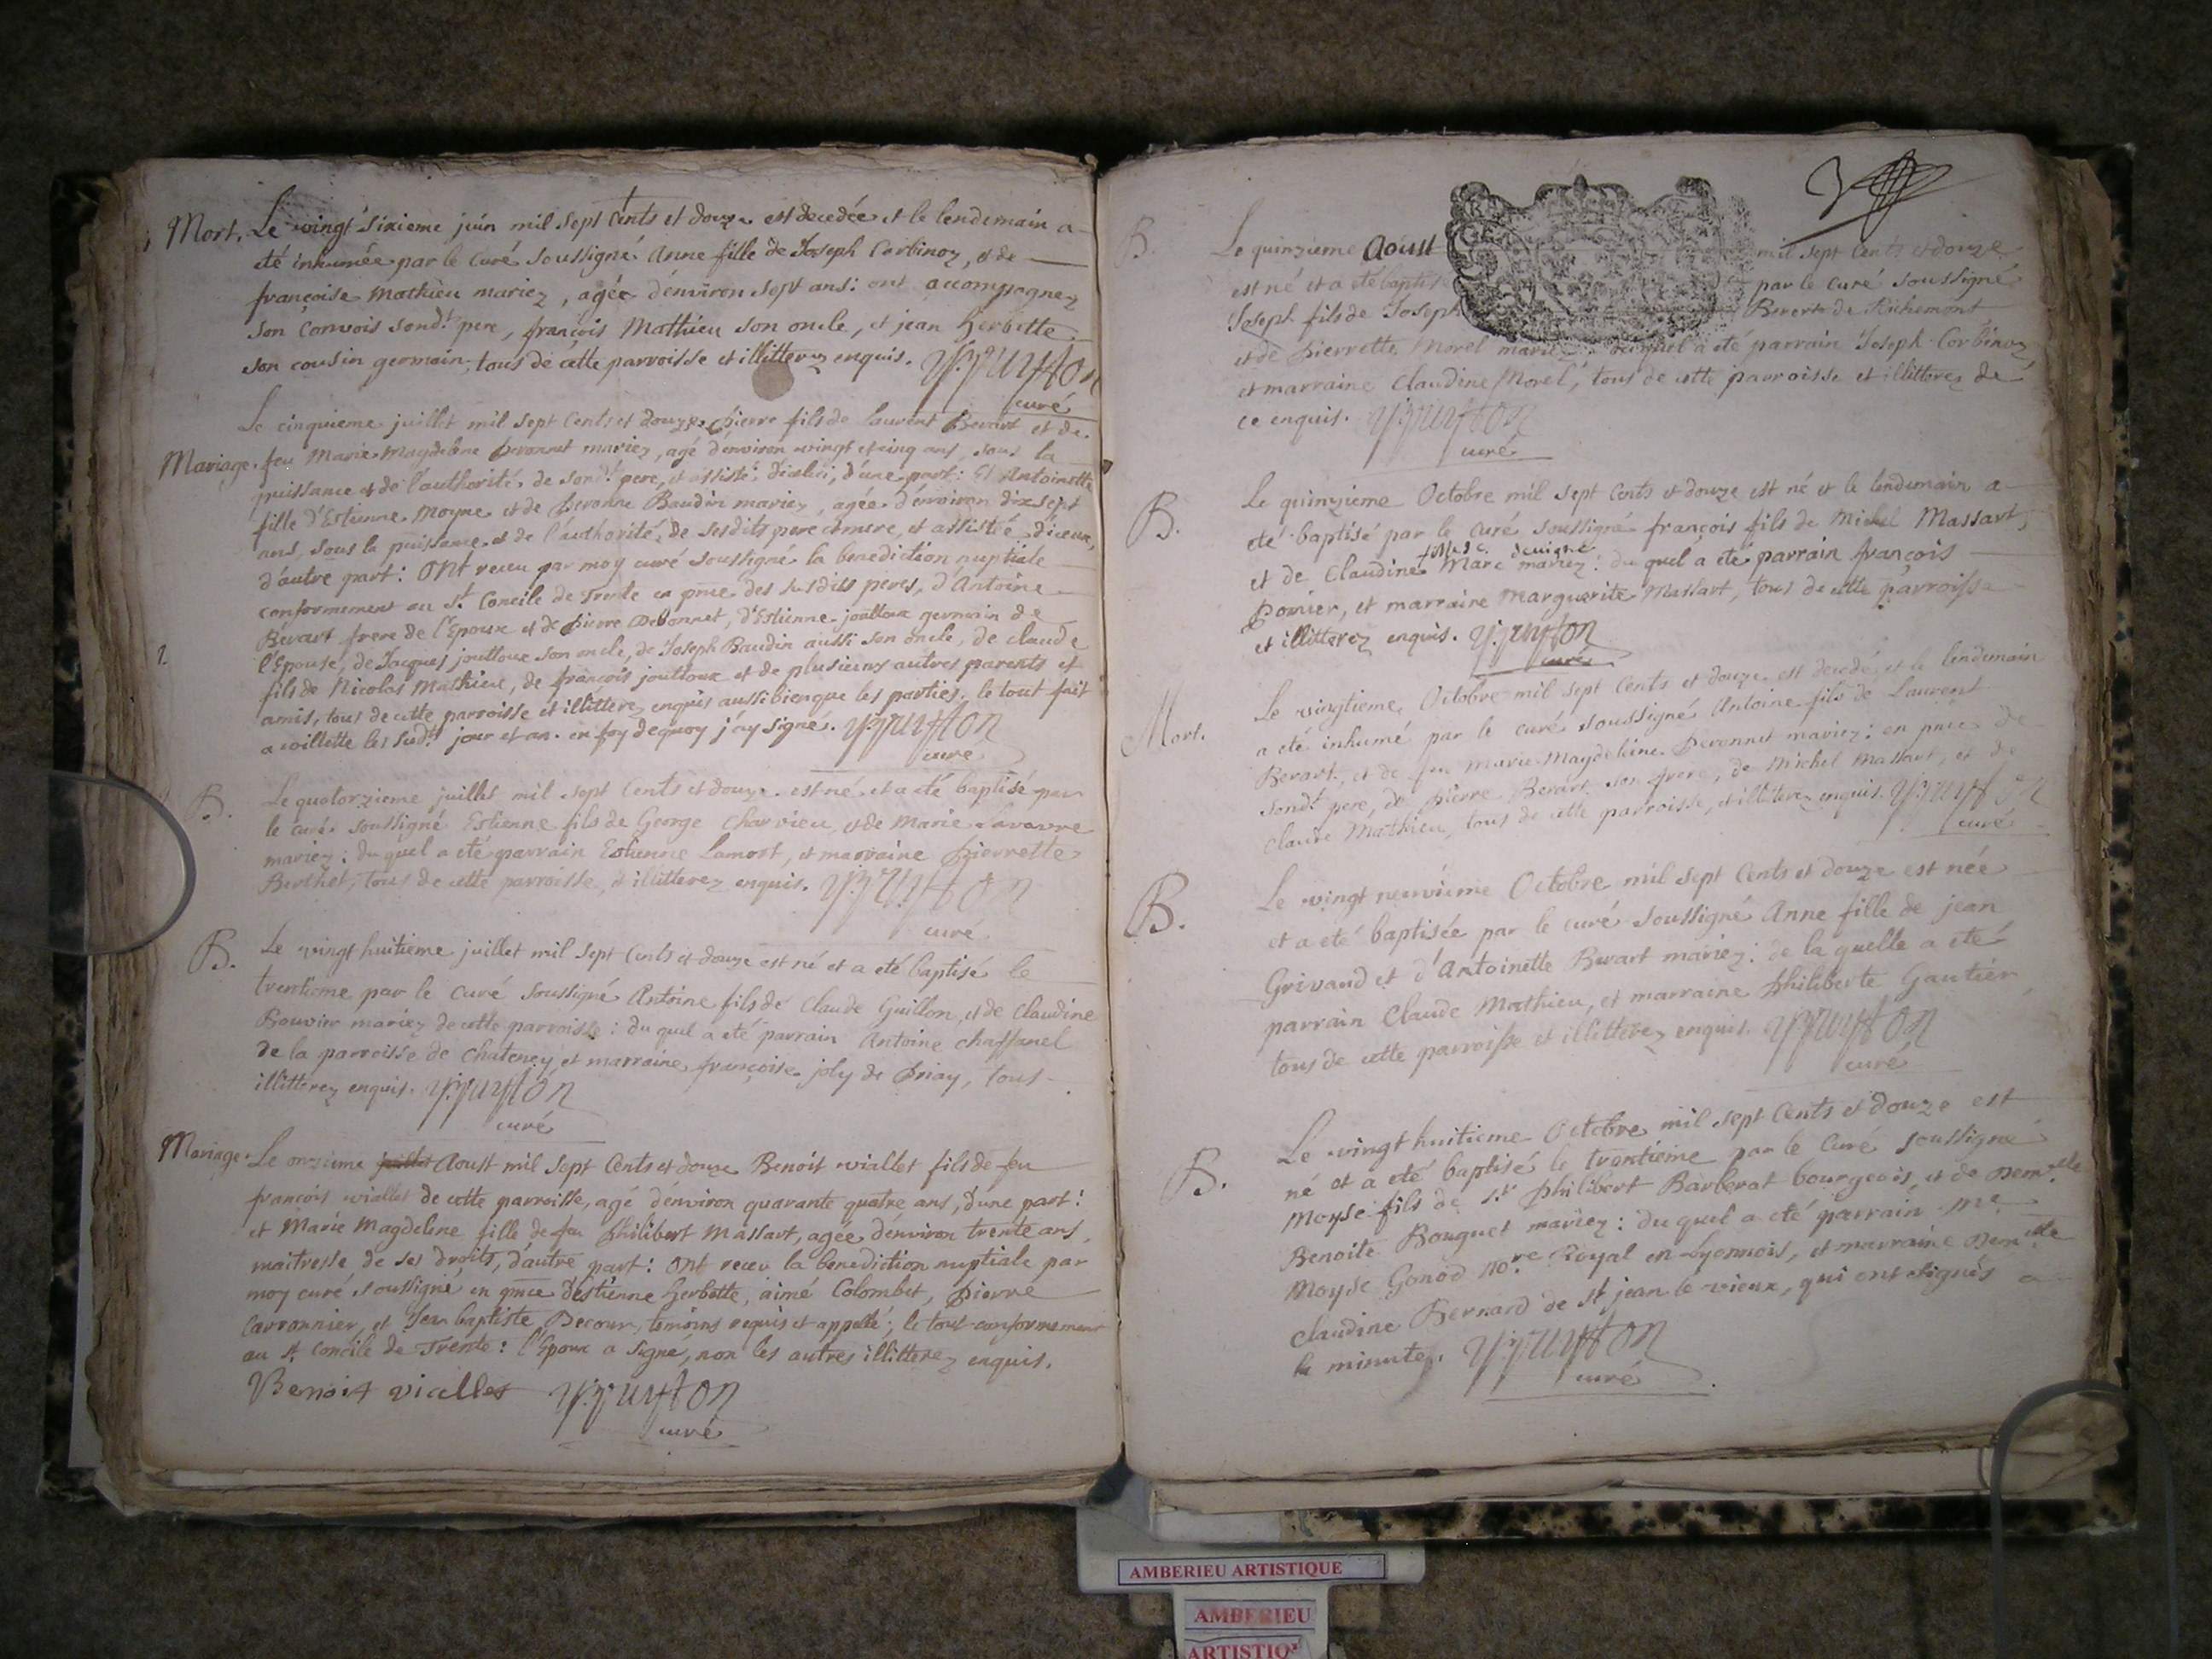 Mort. Le vingt sixieme juin mil sept Cents et douze est decedée et le lendemain a
été inhumée par le Curé soussigné Anne fille de Joseph Corbinoz, et de
françoise Mathieu mariez, agée d'environ sept ans: ont accompagnez
son Convois sond.t pere, françois Mathieu son oncle, et jean herbette
son cousin germain, tous de cette parroisse et illitterez enquis.
curé
Le cinquieme juillet mil sept Cents et douze pierre fils de Laurent Bevart et de
Mariage. feu Marie Magdelene peronnet mariez, agé d'environ vingt et cinq ans, sous la
puissance et de l'authorité de sond.t pere, et assisté d'iceluy, d'une part: Et Antoinette
fille d'Estienne Moyne et de peronne Baudin mariez, agée d'environ dix sept
ans, sous la puissance et de l'authorité de sesdits pere et mere, et assistée d'iceux,
d'autre part: Ont receu par moy curé soussigné la benediction nuptiale
conformement au S.t Concile de Trente en pnce des susdits peres, d'Antoine
Bevart frere de l'Epoux et de pierre peronnet, d'Estienne jouttoux germain de
l'Epouse, de Jacques jouttoux son oncle, de Joseph Baudin aussi son oncle, de claude
fils de Nicolas Mathieu, de françois jouttoux et de plusieurs autres parents et
amis, tous de cette parroisse et illitterez enquis aussi bien que les parties, le tout fait
a voillette les susd.ts jour et an. en foy dequoy j'ay signé.
curé
B. Le quatorzieme juillet mil sept Cents et douze est né et a été baptisé par
le curé soussigné Estienne fils de George Charvieu, et de Marie
mariez: du quel a été parrain Estienne Lamort, et marraine pierrette
Berthet, tous de cette parroisse, et illitterez enquis.
curé
B. Le vingt huitieme juillet mil sept Cents et douze est né et a été baptisé le
trentieme par le curé soussigné Antoine fils de Claude Guillon, et de Claudine
Bouvier mariez de cette parroisse: du quel a été parrain Antoine chassanel
de la parroisse de chateney et marraine françoise joly de priay, tous
illitterez enquis.
curé
Mariage. Le onzieme juillet Aoust mil sept Cents et douze Benoit viallet fils de feu
françois viallet de cette parroisse, agé d'environ quarante quatre ans, d'une part:
et Marie Magdelene fille de feu philibert Massart, agée d'environ trente ans,
maitresse de ses droits, d'autre part: Ont receu la benediction nuptiale par
moy curé soussigné en pnce d'estienne herbette, aimé Colombet, pierre
Carronnier, et Jean baptiste Decour, temoins requis et appellé; le tout conformement
au S.t Concile de Trente: l'Epoux a signé, non les autres illitterez enquis.
Benoit vialles
curé
B. Le quinzieme Aoust mil sept Cents et douze
est né et a été baptisé par le curé soussigné
Joseph fils de Joseph Bevert de Richemont
et de pierrette Morel mariez: duquel a été parrain Joseph Corbinoz
et marraine Claudine Morel, tous de cette parroisse et illitterez de
ce enquis.
curé
B. Le quinzieme Octobre mil sept Cents et douze est né et le lendemain a
été baptisé par le curé soussigné françois fils de Michel Massart,
et de Claudine Marc mariez: du quel a été parrain françois
pomier, et marraine Marguerite Massart, tous de cette parroisse
et illitterez enquis.
curé
Mort. Le vingtieme Octobre mil sept Cents et douze est decedé et le lendemain
a été inhumé par le curé soussigné Antoine fils de Laurent
Bevart, et de feu marie Magdeleine peronnet mariez: en pnce de
sond.t pere, de pierre Bevart son frere, de Michel Massart, et de
claude Mathieu, tous de cette parroisse, et illitterez enquis.
curé
B. Le vingt neuvieme Octobre mil sept Cents et douze est née
et a été baptisée par le curé soussigné Anne fille de jean
Grivaud et d'Antoinette Bevart mariez: de la quelle a été
parrain Claude Mathieu, et marraine philiberte Gautier
tous de cette parroisse et illitterez enquis.
curé
B. Le vingt huitieme Octobre mil sept Cents et douze est
né et a été baptisé le trentieme par le Curé soussigné
Moyse fils de S.r philibert Barberat bourgeois, et de Dem.elle
Benoite Bouguet mariez: du quel a été parrain M.e
Moyse Gonod no.re Royal en Lyonnois, et marraine Dem.elle
claudine Bernard de S.t jean le vieux, qui ont signés a
la minute.
curé
AMBERIEU ARTISTIQUE
AMBERIEU
ARTISTIQ